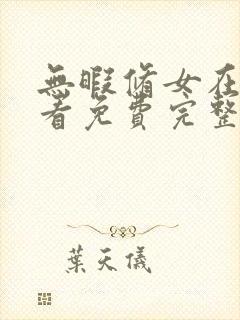 無暇脩女在
看免費完整
葉天儀